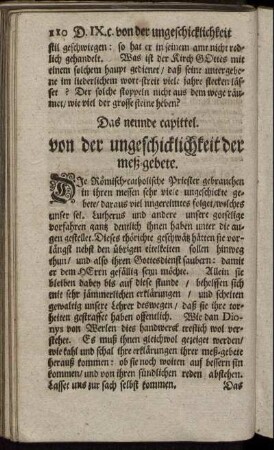 110 D. IX.c. von der ungeschicklichkeit
still geschwiegen: so hat er in seinem amt nicht red-
lich gehandelt. Was ist der Kirch GOttes mit
einem solchem haupt gedienet / daß seine untergehö-
ne im liederlichem wort-streit viele jahre stecken läs-
set? Der solche stoppeln nicht aus dem wege räu-
met / wie viel der grosse steine heben?
Das neunde capittel.
von der ungeschicklichkeit der
meß-gebete.
DIe Römisch-catholische Priester gebrauchen
in ihren messen sehr viele ungeschickte ge-
bete / daraus viel ungereimtes folget / wolches
unser sel. Lutherus und andere unsere gottselige
vorfahren gantz deutlich ihnen haben unter die au-
gen gestellet. Dieses thörichte geschwätz hätten sie vor-
längst nebst den übrigen eitelkeiten sollen hinweg
thun / und also ihren Gottesdienst saubern: damit
er dem HErrn gefällig seyn möchte. Allein sie
bleiben dabey bis auf diese stunde / behelffen sich
mit sehr jämmerlichen erklärungen / und schelten
gewaltig unsere Lehrer deswegen / daß sie ihre tor-
heiten gestraffet haben öffentlich. Wie dan Dio-
nys von Werlen dis handwerck trefflich wol ver-
stehet. Es muß ihnen gleichwol gezeiget werden /
wie kahl und schal ihre erklärungen ihrer meß-gebete
herauß kommen: ob sie noch wolten auf bessern sin
kommen / und von ihren sündlichen reden abstehen.
Lasset uns zur sach selbst kommen. Das